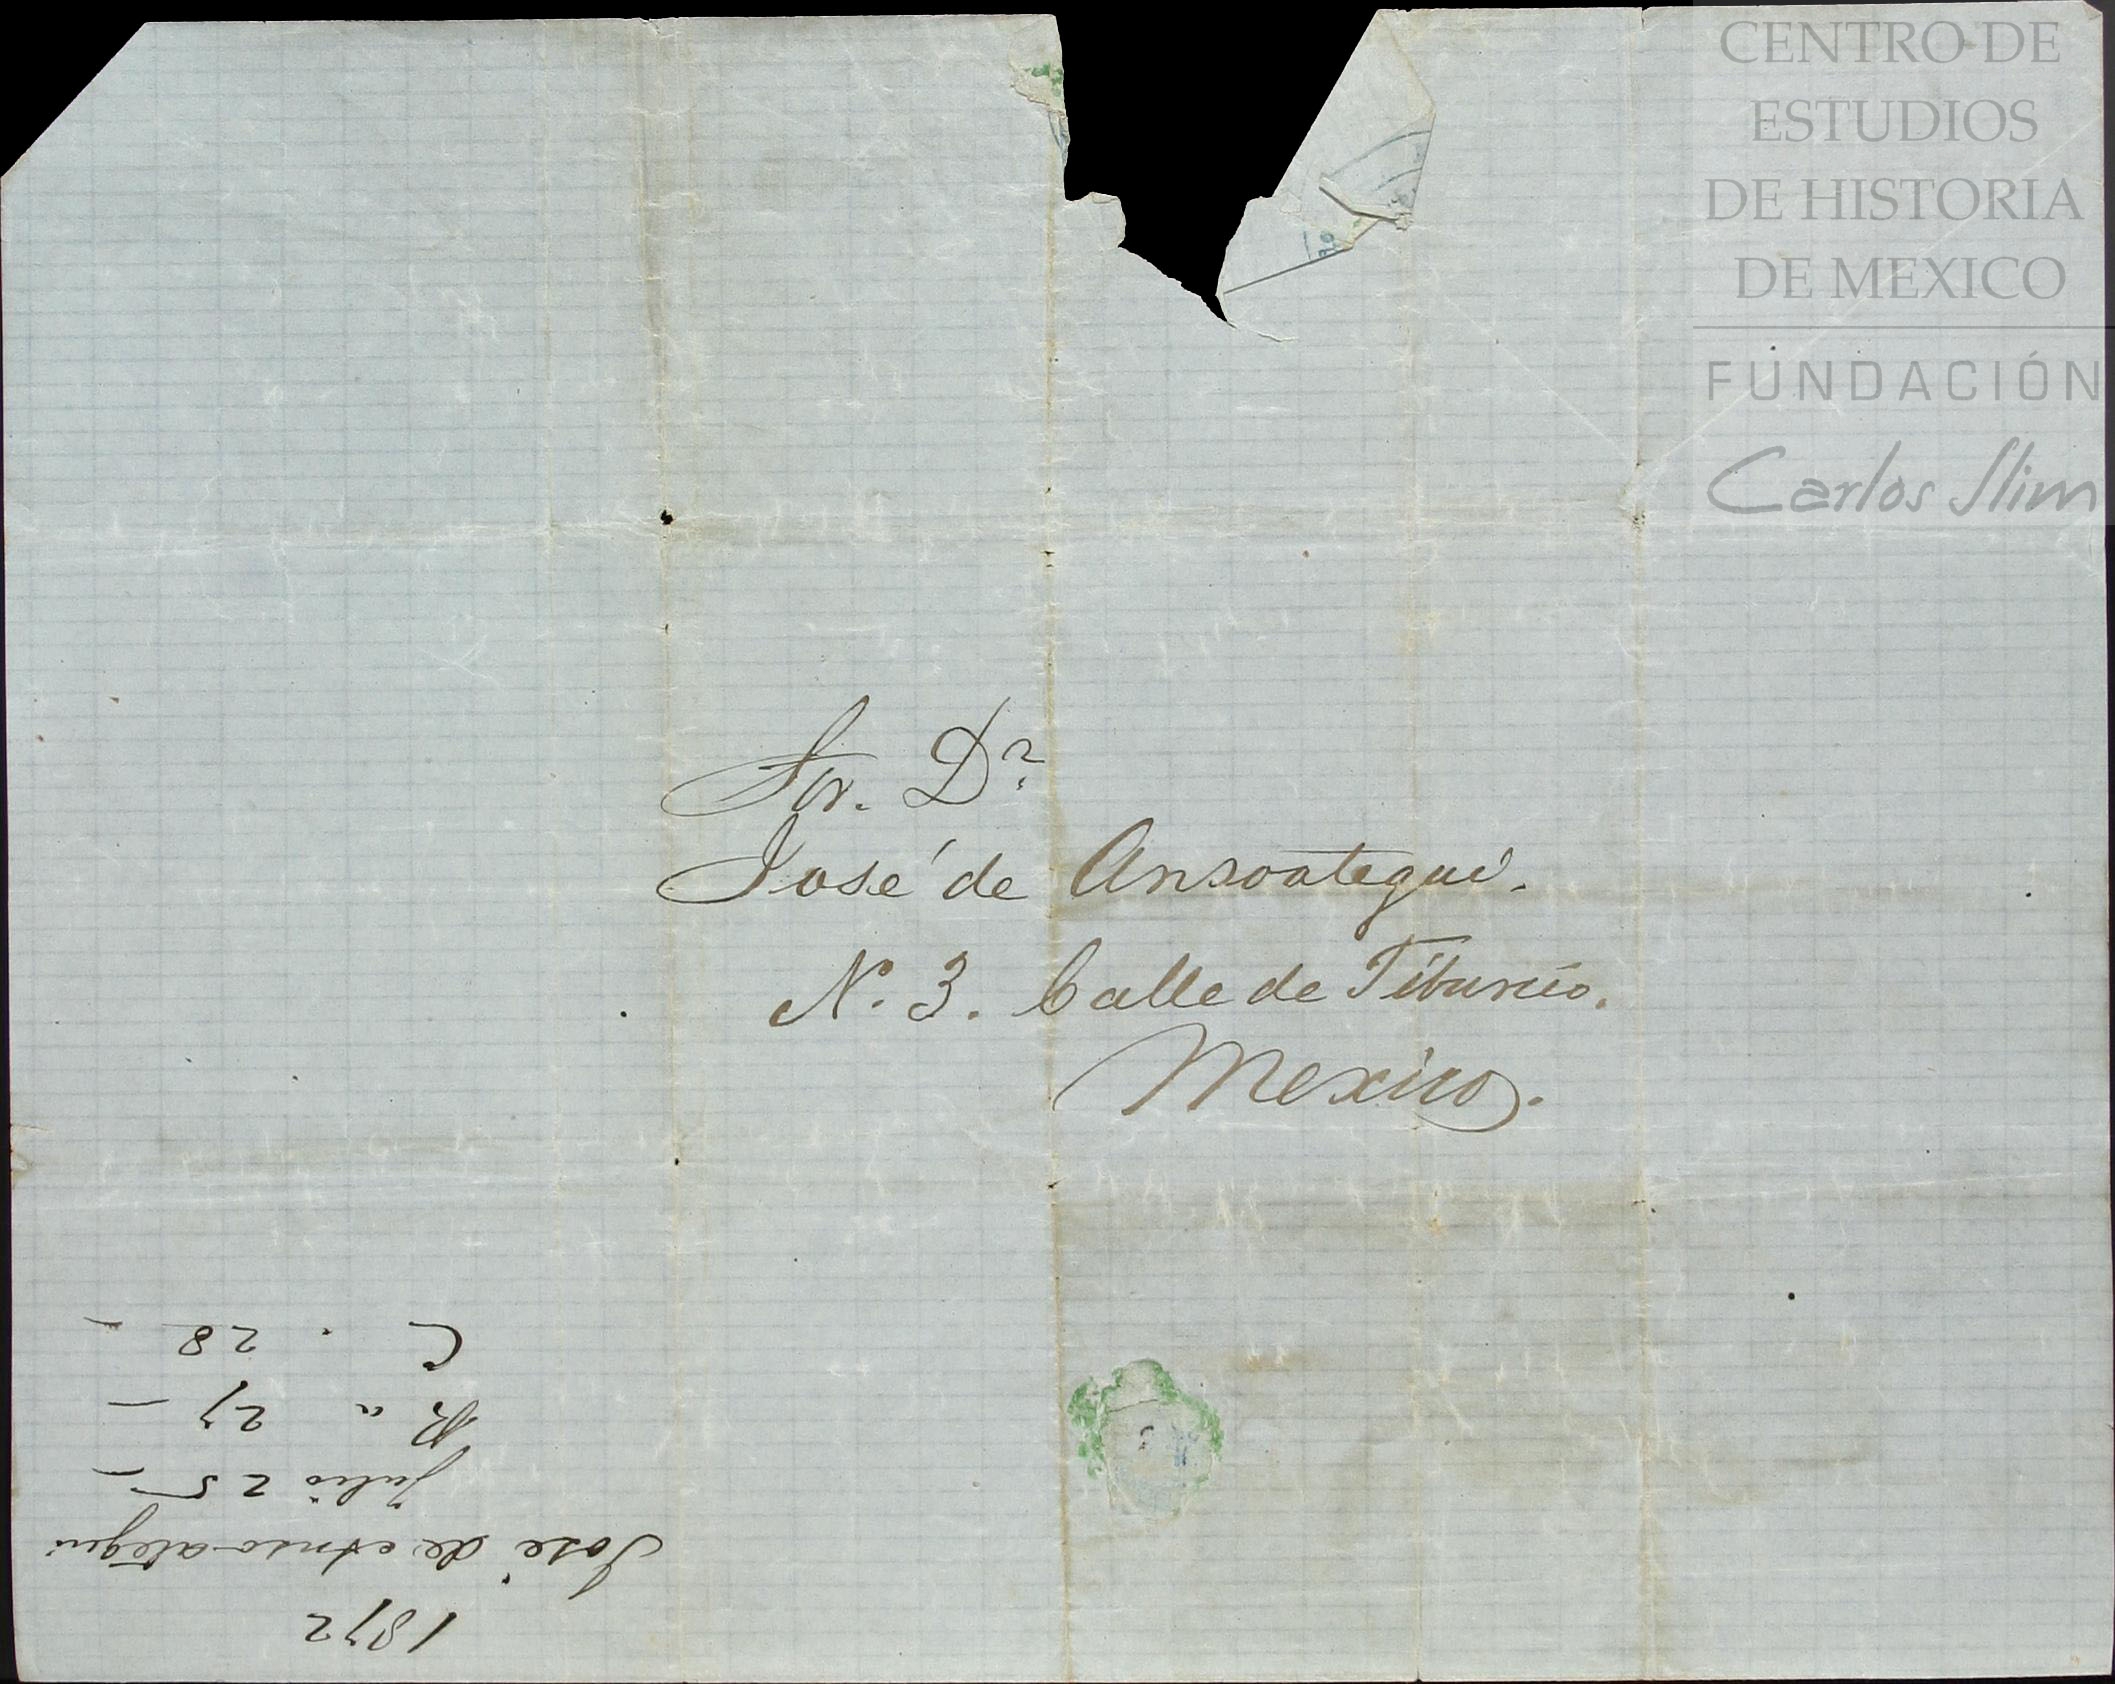 CENTRO DE
ESTUDIOS
DE HISTORIA
DE MEXICO
FUNDACIÓN
Carlos Slim
Sr. Dn.
José de Ansoategui.
N.º 3. Calle de Tiburcio.
Mexico.
1872
José de Ansoategui
Julio 25 —
R. " 27 —
C. " 28 —